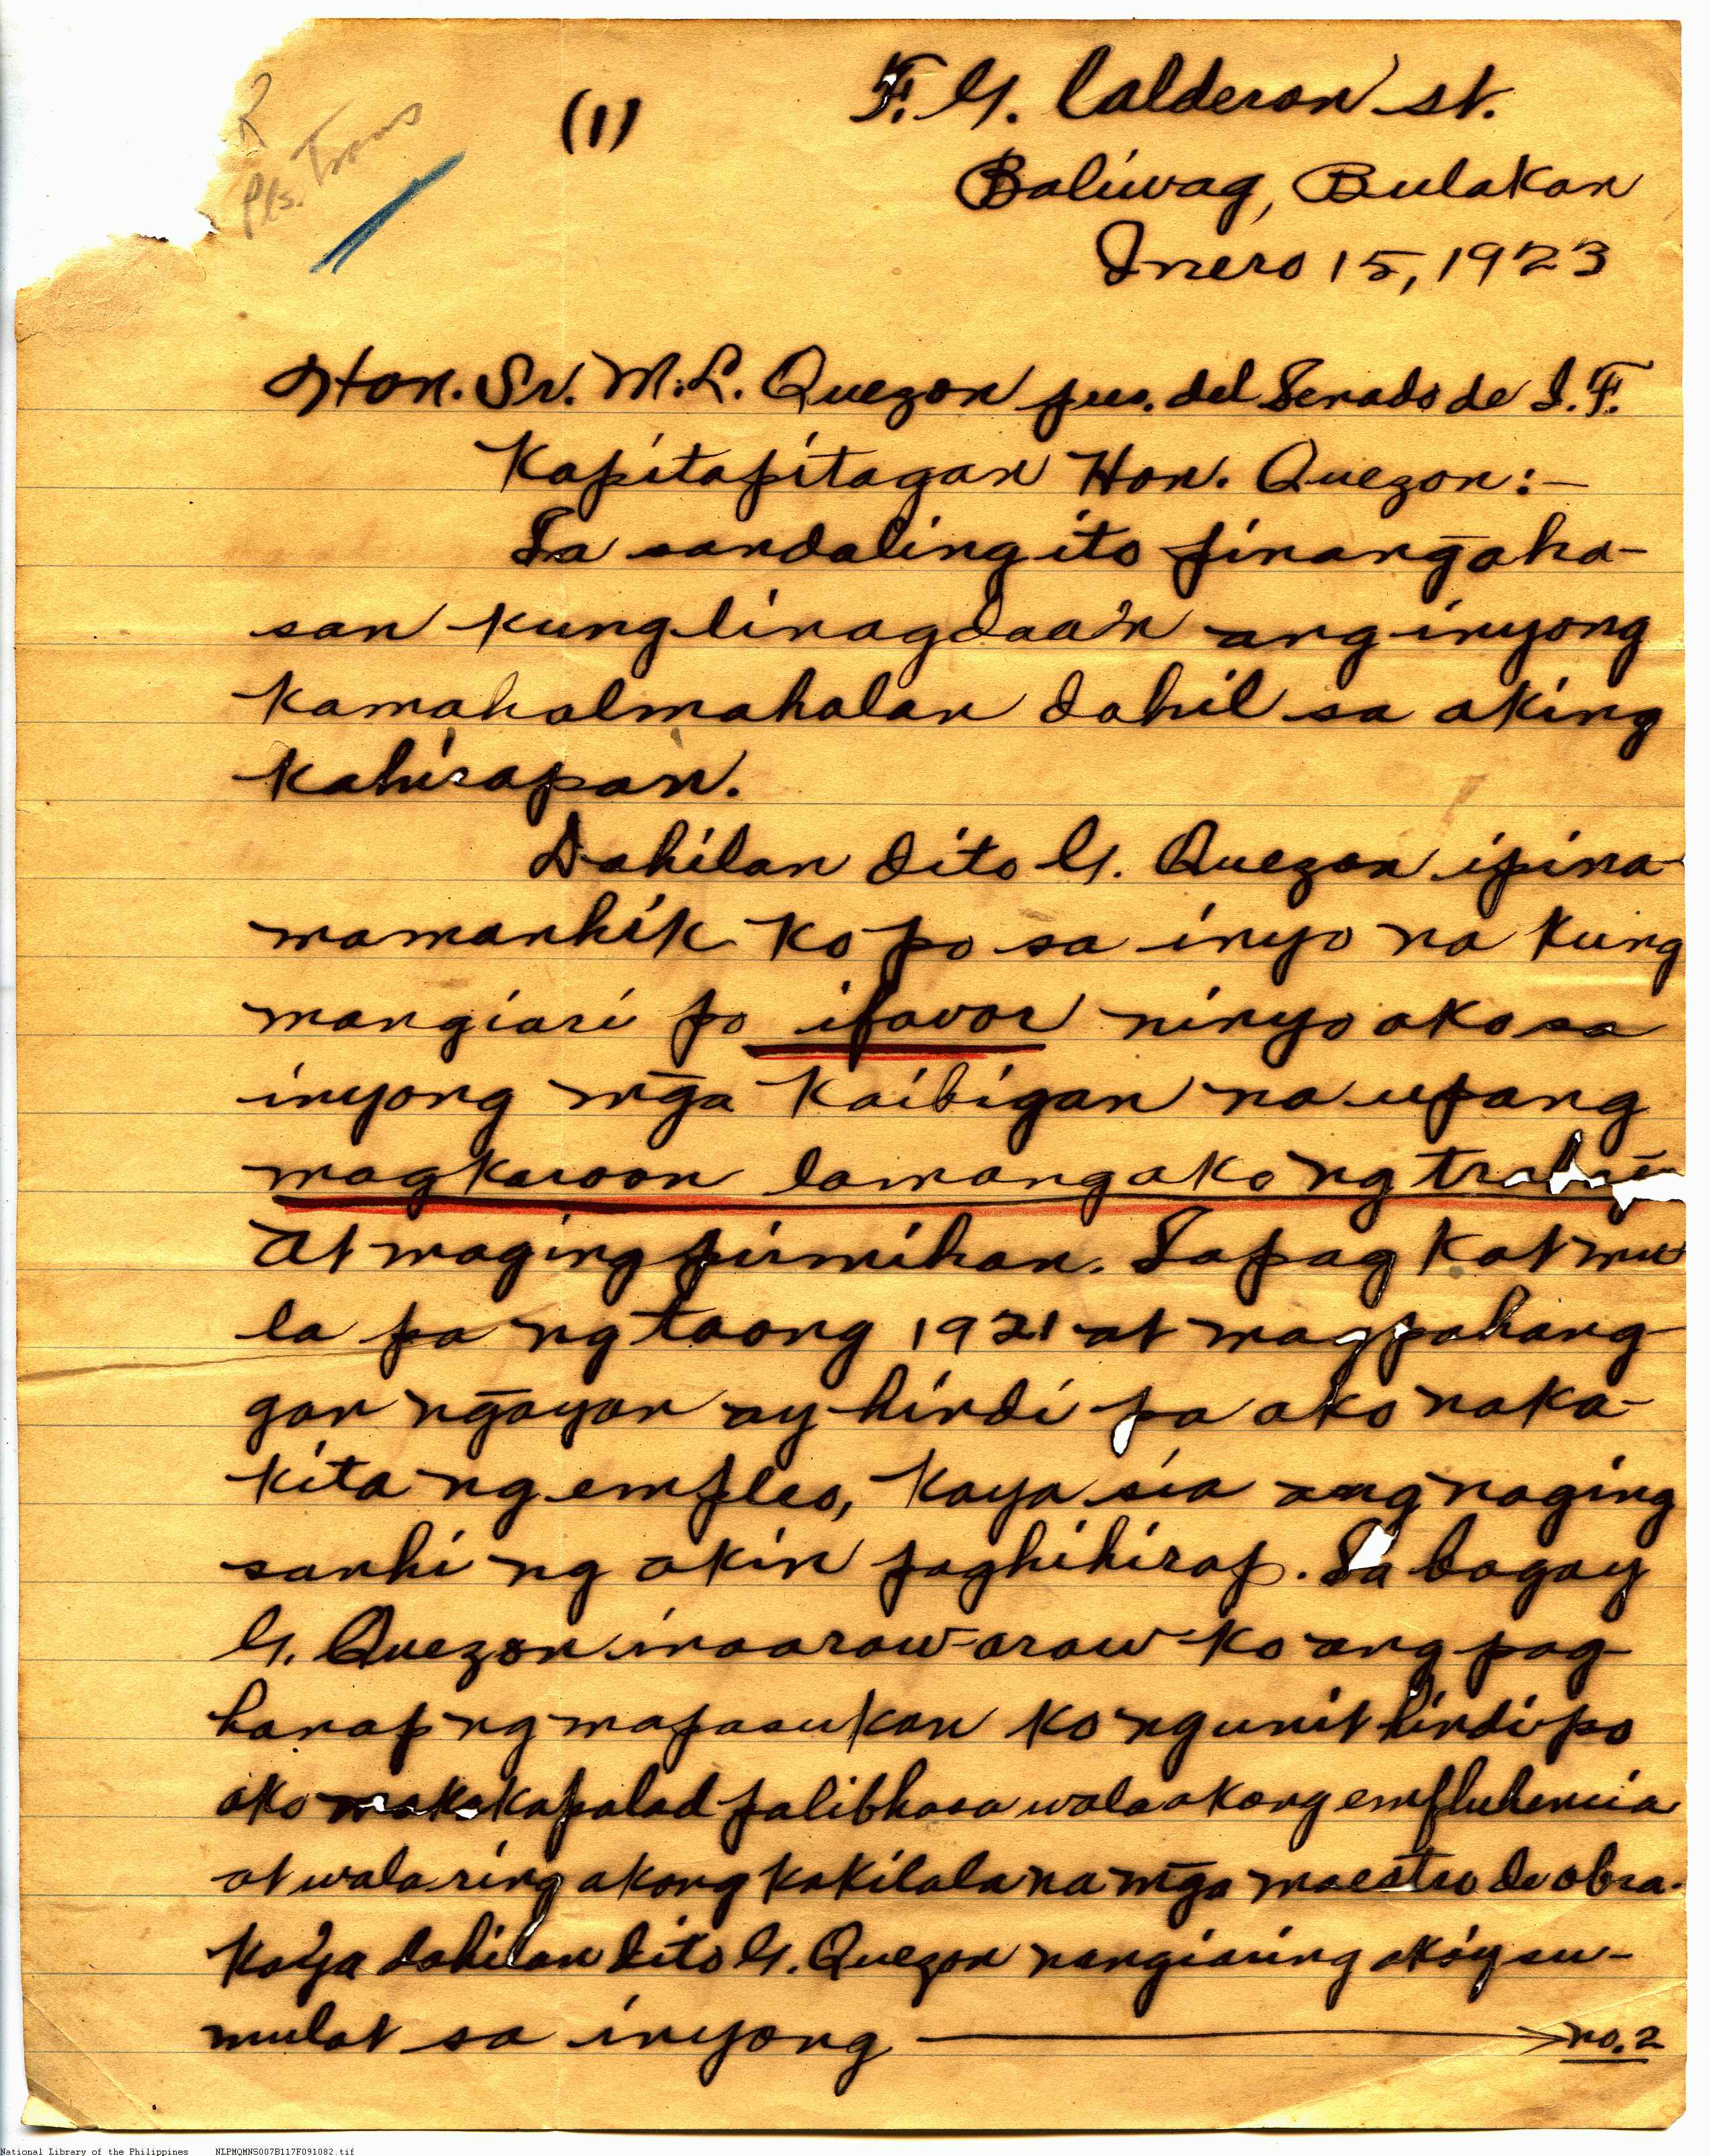 R
Pls. Trans
(1)
F. G. Calderon st.
Baliwag, Bulakan
Inero 15, 1923
Hon. Sr. M. L. Quezon pres. del Senado de I. F.
Kapitapitagan Hon. Quezon:—
Sa sandaling ito pinang̃aha-
san kung linagdaa'n ang inyong
kamahalmahalan dahil sa aking
kahirapan.
Dahilan dito G. Quezon ipina-
mamanhik ko po sa inyo na kung
mangiari po ifavor ninyo ako sa
inyong mg̃a kaibigan na upang
magkaroon lamang ako ng
at maging pirmihan. Sapag kat mu
la pa ng taong 1921 at magpahang-
gan ng̃ayon ay hindi pa ako naka-
kita ng empleo, kaya sia ang naging
sanhi ng akin paghihirap. Sa bagay
G. Quezon inaaraw-araw ko ang pag-
hanap ng mapasukan ko ngunit hindi po
ako makakapalad palibhasa wala akong emfluhencia
at wala ring akong kakilala na mg̃a maestro de obra.
Kaya dahilan dito G. Quezon nangiaring ako'y su-
mulat sa inyong → no. 2
National Library of the Philippines NLPMQMNS007B117F091082.tif